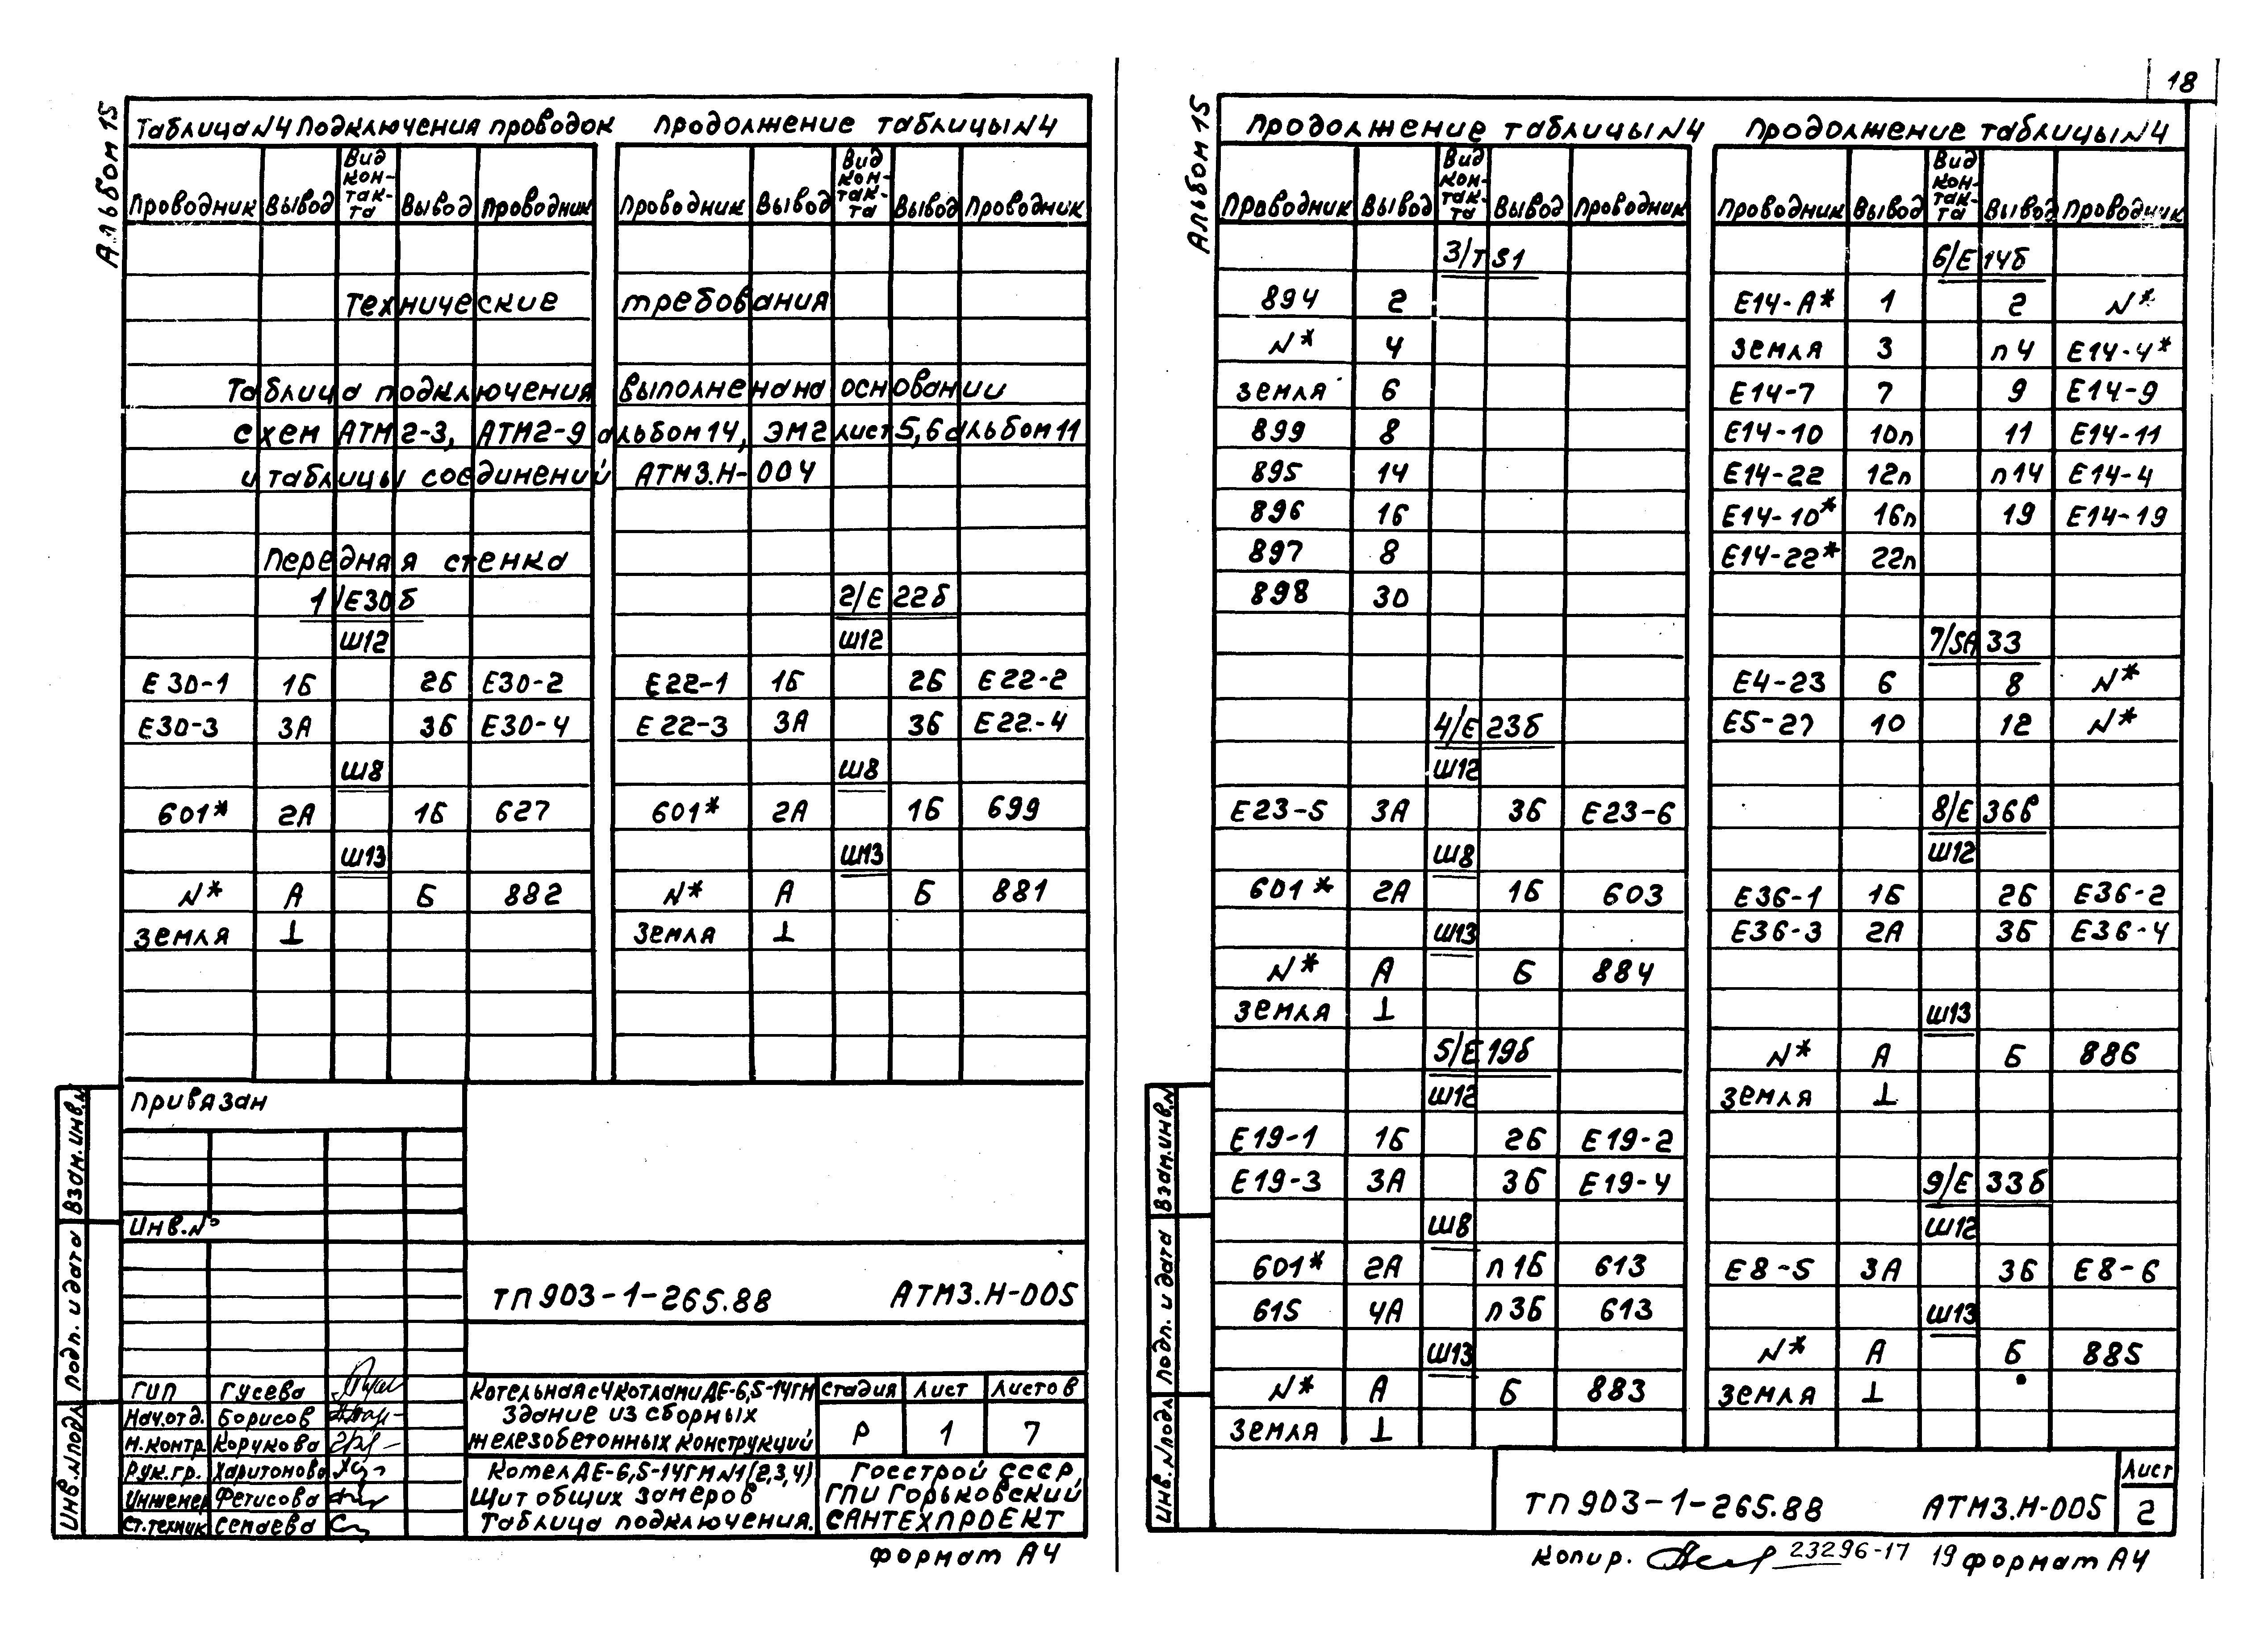 Альбом 15
Таблица N4 Подключения проводок
Продолжение таблицы N4
Проводник Вывод Вид кон-так-та Вывод Проводник
Проводник Вывод Вид кон-так-та Вывод Проводник
Технические требования
Таблица подключения выполнена на основании
схем АТМ2-3, АТМ2-9 альбом 14, ЭМ2 лист 5,6 альбом 11
и таблицы соединений АТМ3.Н-004
Передняя стенка
1/Е30б
Ш12
Е30-1 1Б 2Б Е30-2
Е30-3 3А 3Б Е30-4
Ш8
601* 2А 1Б 627
Ш13
N* А Б 882
Земля ⊥
2/Е22б
Ш12
Е22-1 1Б 2Б Е22-2
Е22-3 3А 3Б Е22-4
Ш8
601* 2А 1Б 699
Ш13
N* А Б 881
Земля ⊥
Привязан
Инв.№
ТП 903-1-265.88 АТМ3.Н-005
ГИП Гусева
Нач.отд. Борисов
Н.контр. Корчкова
Рук.гр. Харитонова
Инженер Фетисова
Ст.техник Семаева
Котельная с 4 котлами ДЕ-6,5-14ГМ
Здание из сборных
железобетонных конструкций
Стадия Лист Листов
Р 1 7
Котел ДЕ-6,5-14ГМ N1(2,3,4)
Щит общих замеров
Таблица подключения.
Госстрой СССР,
ГПИ Горьковский
САНТЕХПРОЕКТ
Взам.инв.N
Подп. и дата
Инв.N подл
Формат А4
18
Альбом 15
Продолжение таблицы N4
Продолжение таблицы N4
Проводник Вывод Вид кон-так-та Вывод Проводник
Проводник Вывод Вид кон-так-та Вывод Проводник
3/TS1
894 2
N* 4
Земля 6
899 8
895 14
896 16
897 8
898 30
4/Е23б
Ш12
Е23-5 3А 3Б Е23-6
Ш8
601* 2А 1Б 603
Ш13
N* А Б 884
Земля ⊥
5/Е19б
Ш12
Е19-1 1Б 2Б Е19-2
Е19-3 3А 3Б Е19-4
Ш8
601* 2А п1Б 613
615 4А п3Б 613
Ш13
N* А Б 883
Земля ⊥
6/Е14б
Е14-А* 1 2 N*
Земля 3 п4 Е14-4*
Е14-7 7 9 Е14-9
Е14-10 10п 11 Е14-11
Е14-22 12п п14 Е14-4
Е14-10* 16п 19 Е14-19
Е14-22* 22п
7/SA33
Е4-23 6 8 N*
Е5-27 10 12 N*
8/Е36в
Ш12
Е36-1 1Б 2Б Е36-2
Е36-3 2А 3Б Е36-4
Ш13
N* А Б 886
Земля ⊥
9/Е33б
Ш12
Е8-5 3А 3Б Е8-6
Ш13
N* А Б 885
Земля ⊥
Взам.инв.N
Подп. и дата
Инв.N подл
ТП 903-1-265.88 АТМ3.Н-005
Лист
2
Копир. 23296-17 19 Формат А4